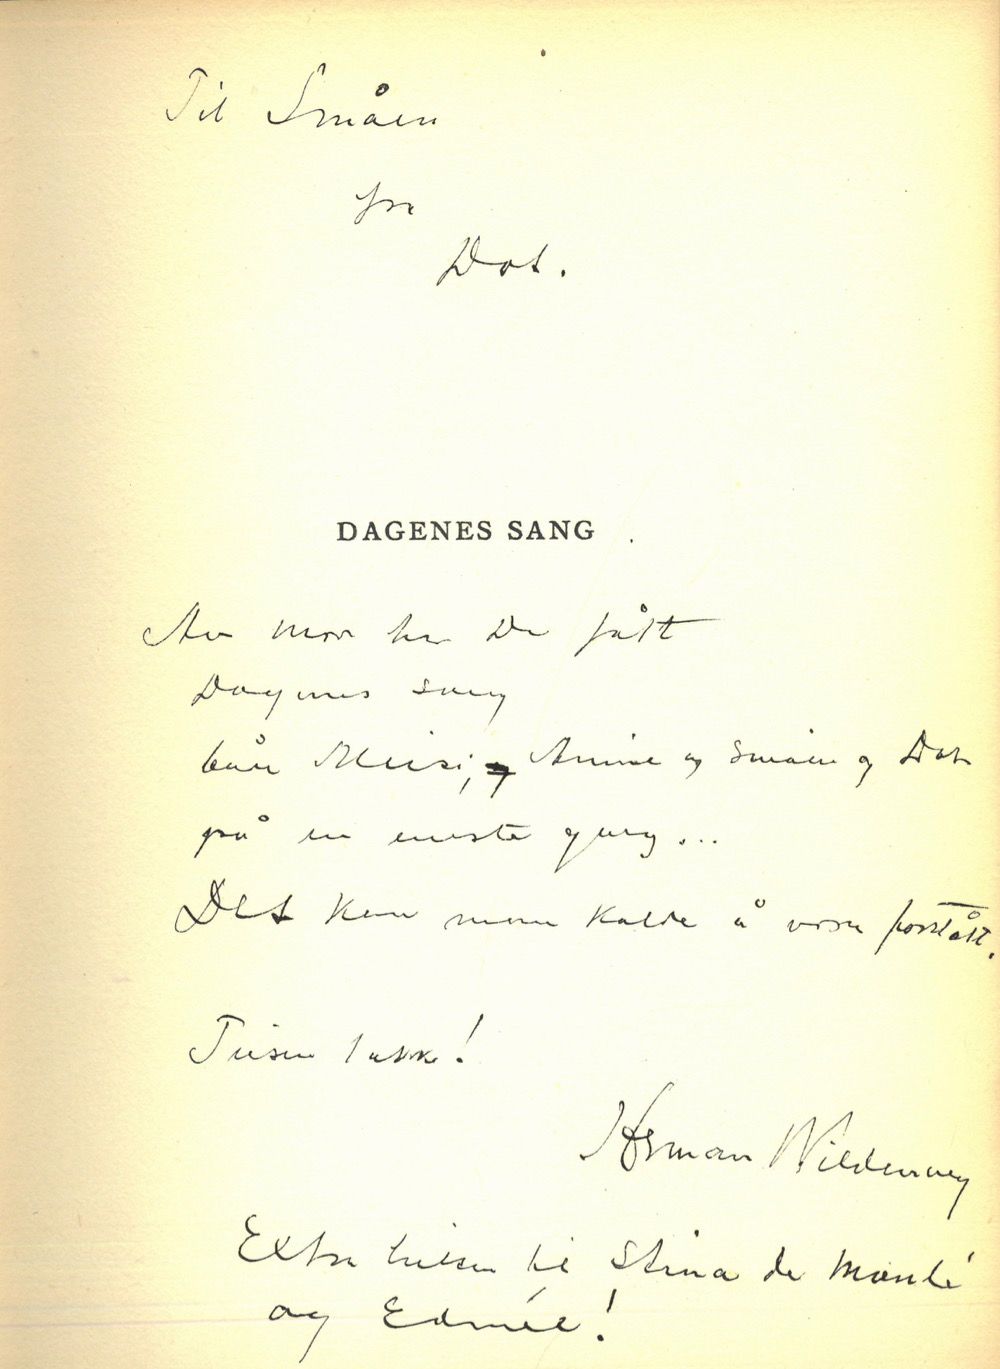 Til Småen
fra
Dot.
DAGENES SANG
Av mor har De fått
Dagenes sang
både og Småen og Dot
på en eneste gang...
Det kan man kalde å være forstått.
Tusen takk!
Herman Wildenvey
Extra hilsen til Stina de
og Edmée!